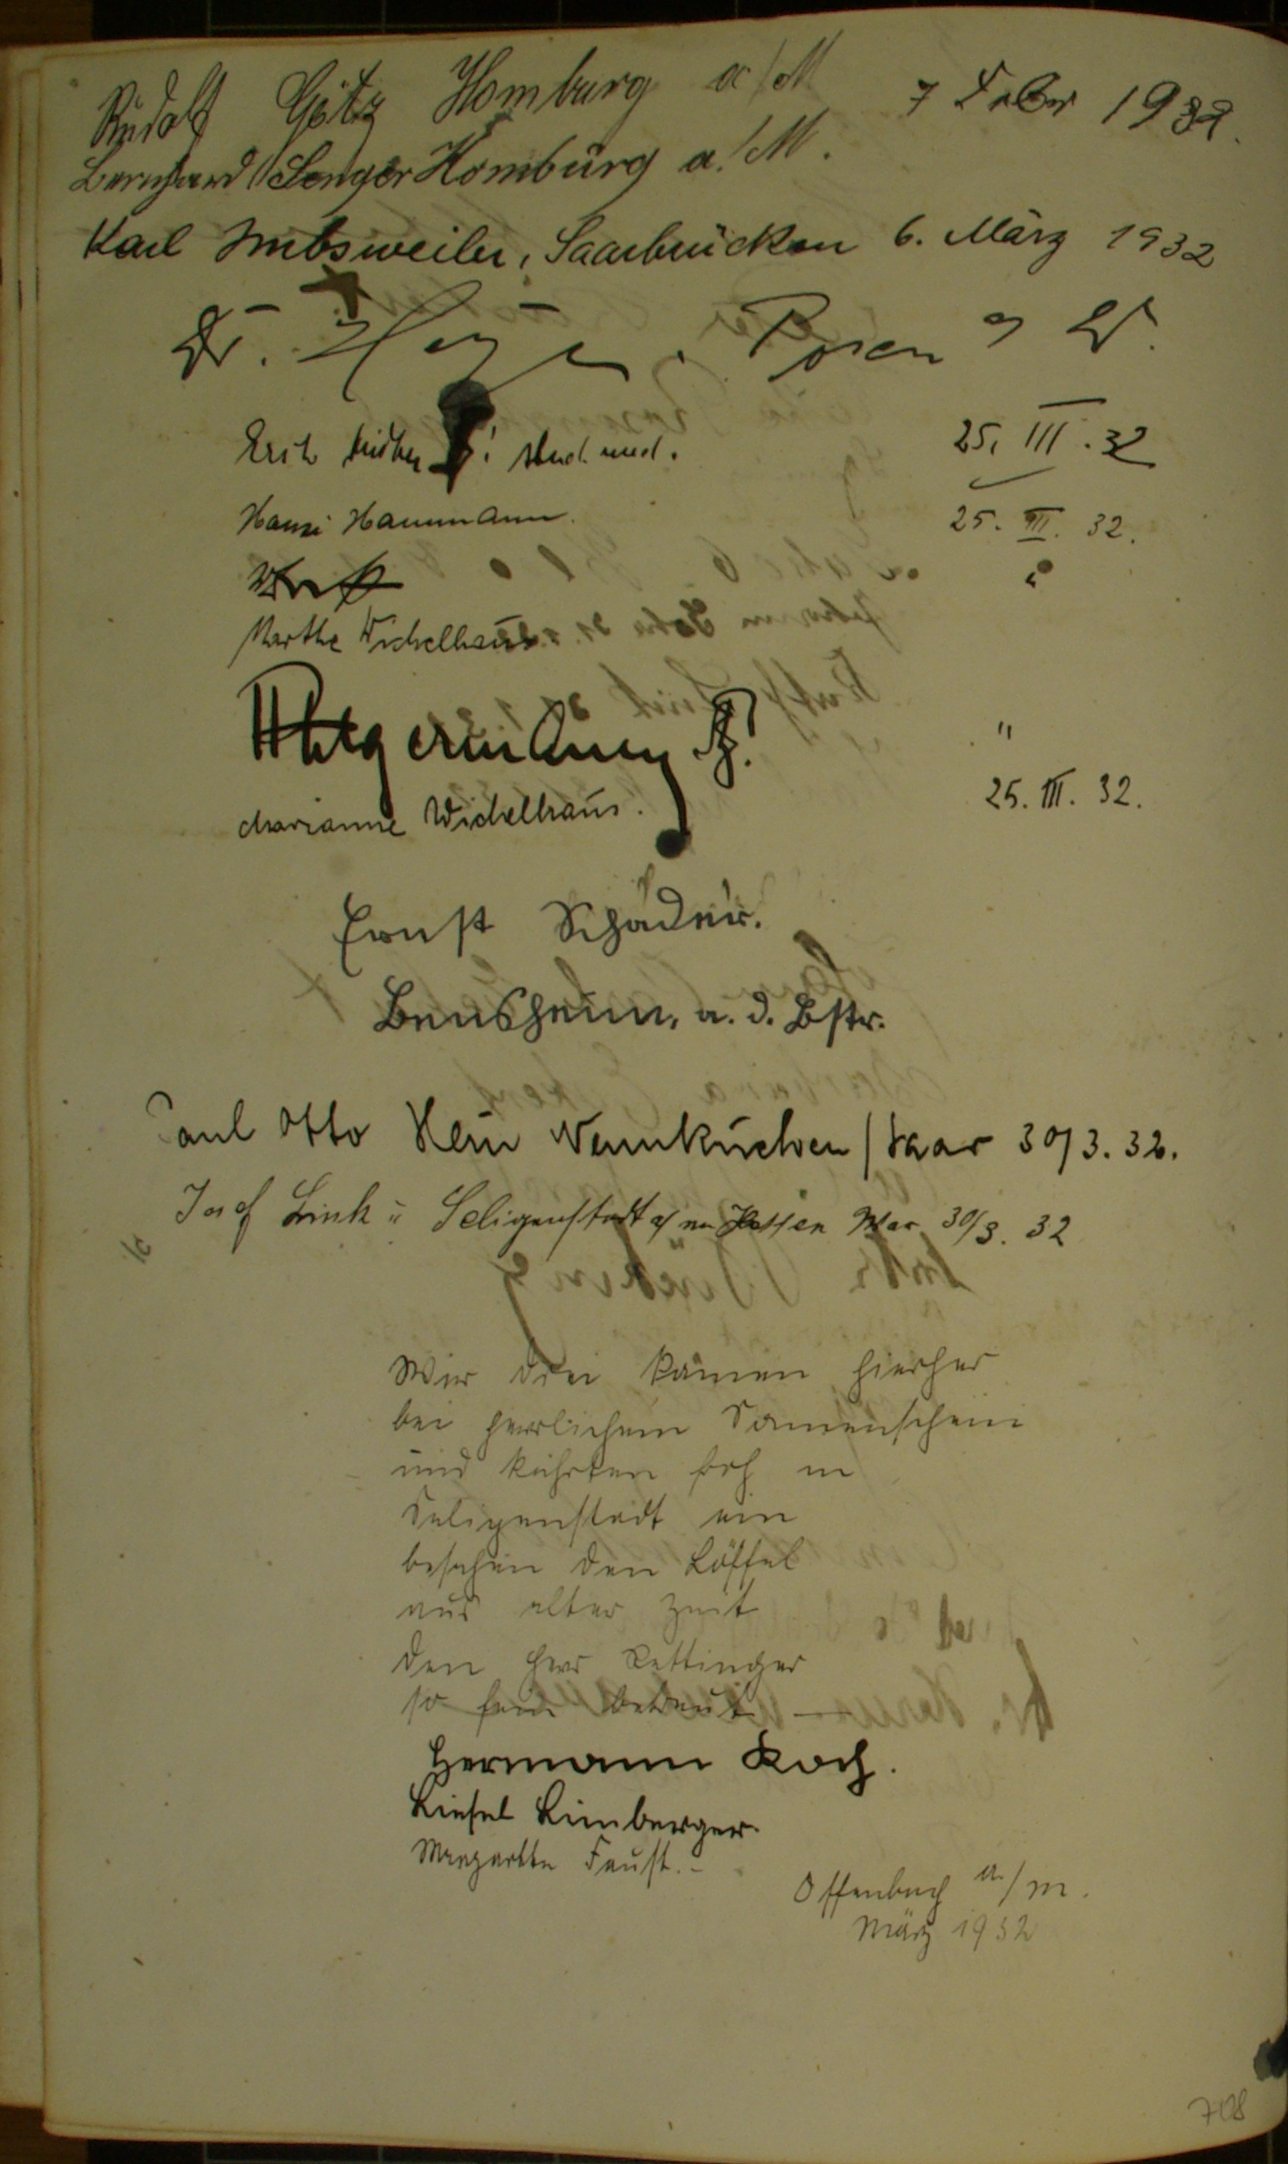 Rudolf Götz Homburg a/M 7 Febr 1932.
Bernhard Senger Homburg a./M.
Karl Imbsweiler, Saarbrücken 6. März 1932
Dr. Posen
Erich stud. med. 25. III. 32
Hansi Hammann. 25. III. 32.
"
Marthe Wichelhaus
"
Marianne Wichelhaus. 25. III. 32.
Ernst Schäder.
Bensheim, a. d. Bstr.
Paul Otto Klein Neunkirchen / Saar 30/3. 32.
Josef Link Seligenstadt Hessen 30/3. 32
Wir drei kamen hierher
bei herrlichem Sonnenschein
und kehrten froh in
Seligenstadt ein
besahen den Löffel
aus alter Zeit
den Herr Rettinger
so fein betreut. –
Hermann Koch.
Liesel Limberger.
Margarethe Faust. –
Offenbach a/M.
März 1932
708